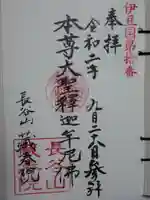 伊豆国第十番
奉拝
令和二年 九月二十八日 参拝
本尊大聖釋迦牟尼佛
長谷山
蔵春院